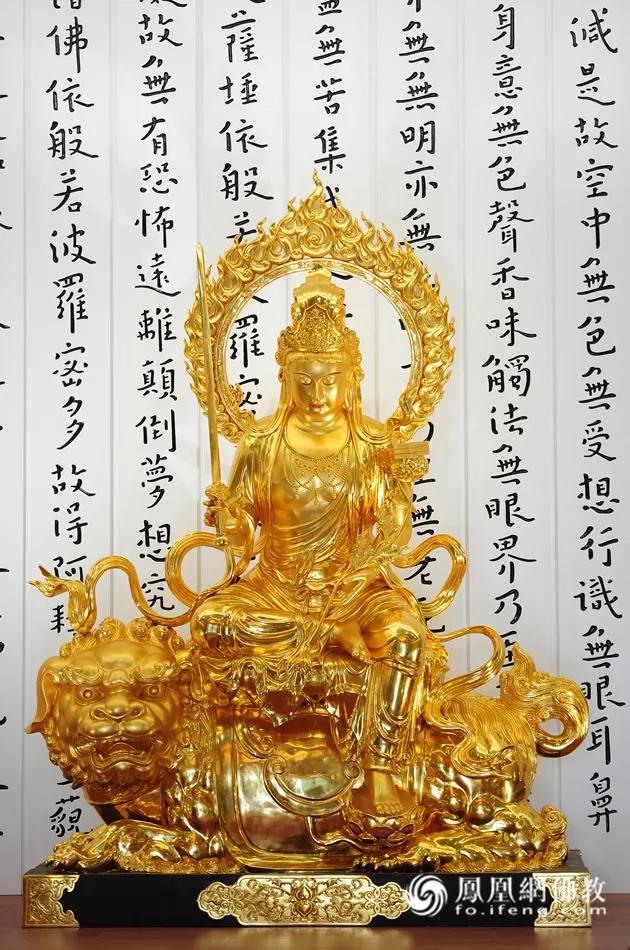 減是故空中無色無受想行識無眼耳鼻
身意無色聲香味觸法無眼界乃至
無無明亦無 無老
盡無苦集
薩埵依般若 羅密
故無有恐怖遠離顛倒夢想究
佛依般若波羅密多故得阿耨 藐
鳳凰網佛教
fo.ifeng.com